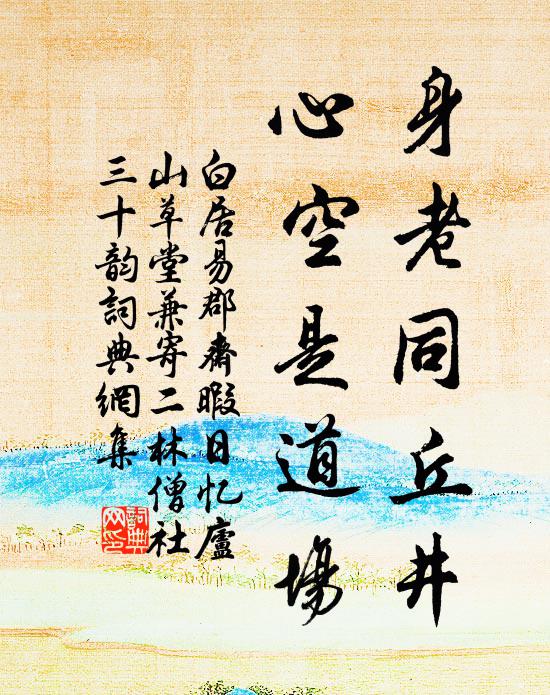 身老同丘井
心空是道場
白居易郡齋暇日忆廬
山草堂兼寄二林僧社
三十韵詞典網集
詞典
网印